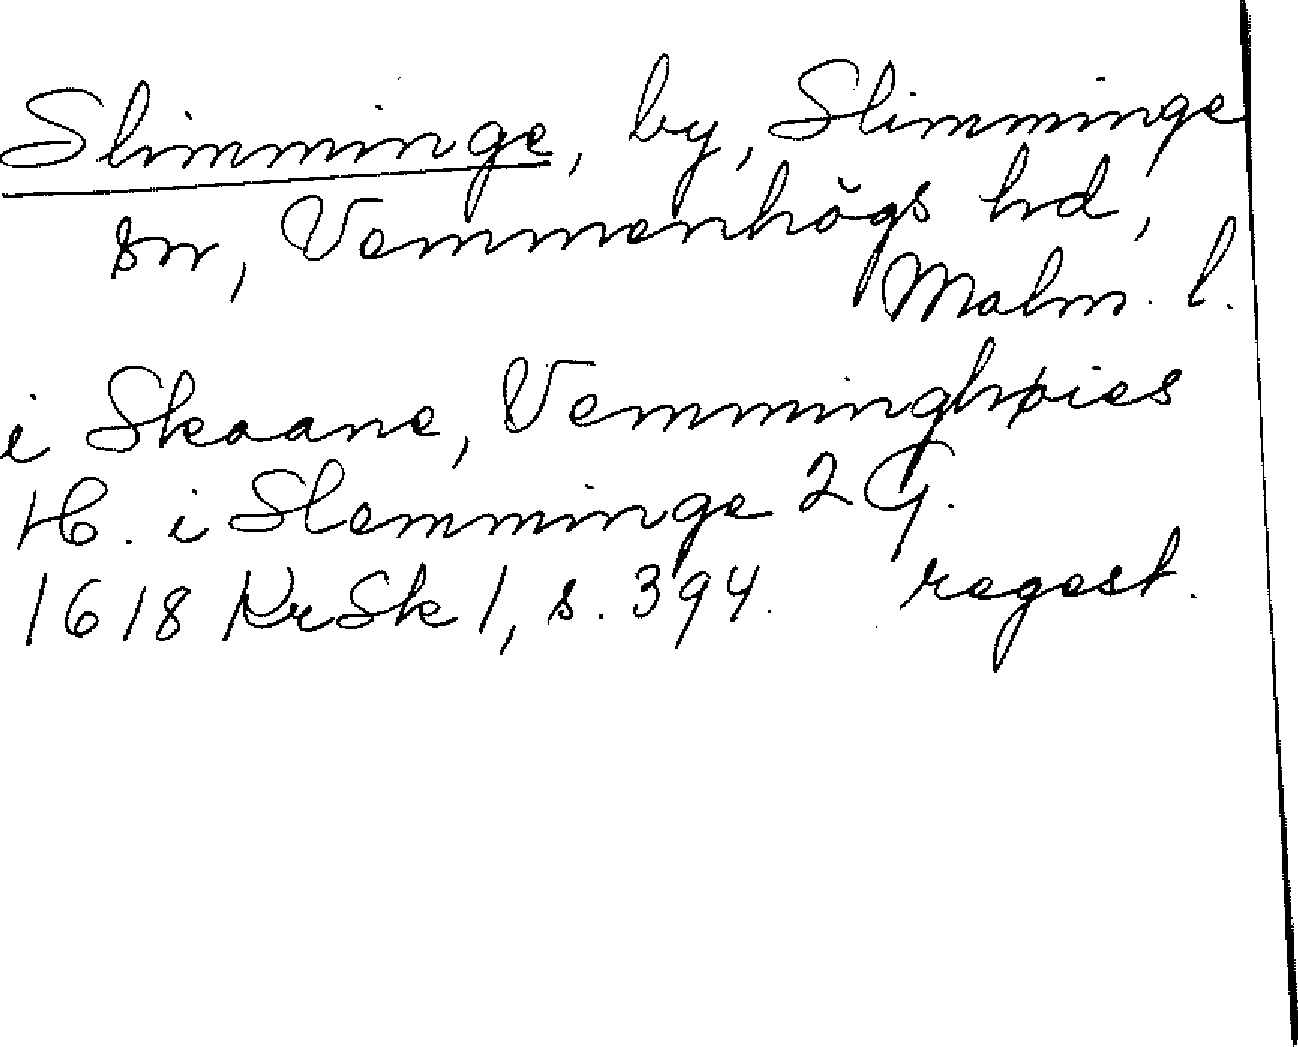 Slimminge, by, Slimminge
sn, Vemmenhögs hd,
Malm. l.
i Skaane, Vemminghøies
H. i Slemminge 2 G.
1618 KrSk 1, s. 394. regest.